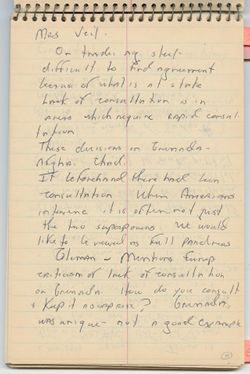 Mrs Veil -
On trade ing steel -
difficult to find agreement
because of what is at stake
Lack of consultation is in
areas which require rapid consul-
tation
These decisions on Grenada -
Afghan. Chad.
If beforehand there had been
consultation When Americans
intervene it is often not just
the two superpowers We would
like to be viewed as full partners
Gluman - Mentions Europ
criticism of lack of consultation
on Grenada. How do you consult
+ keep it a surprise? Grenada
was unique - not a good example